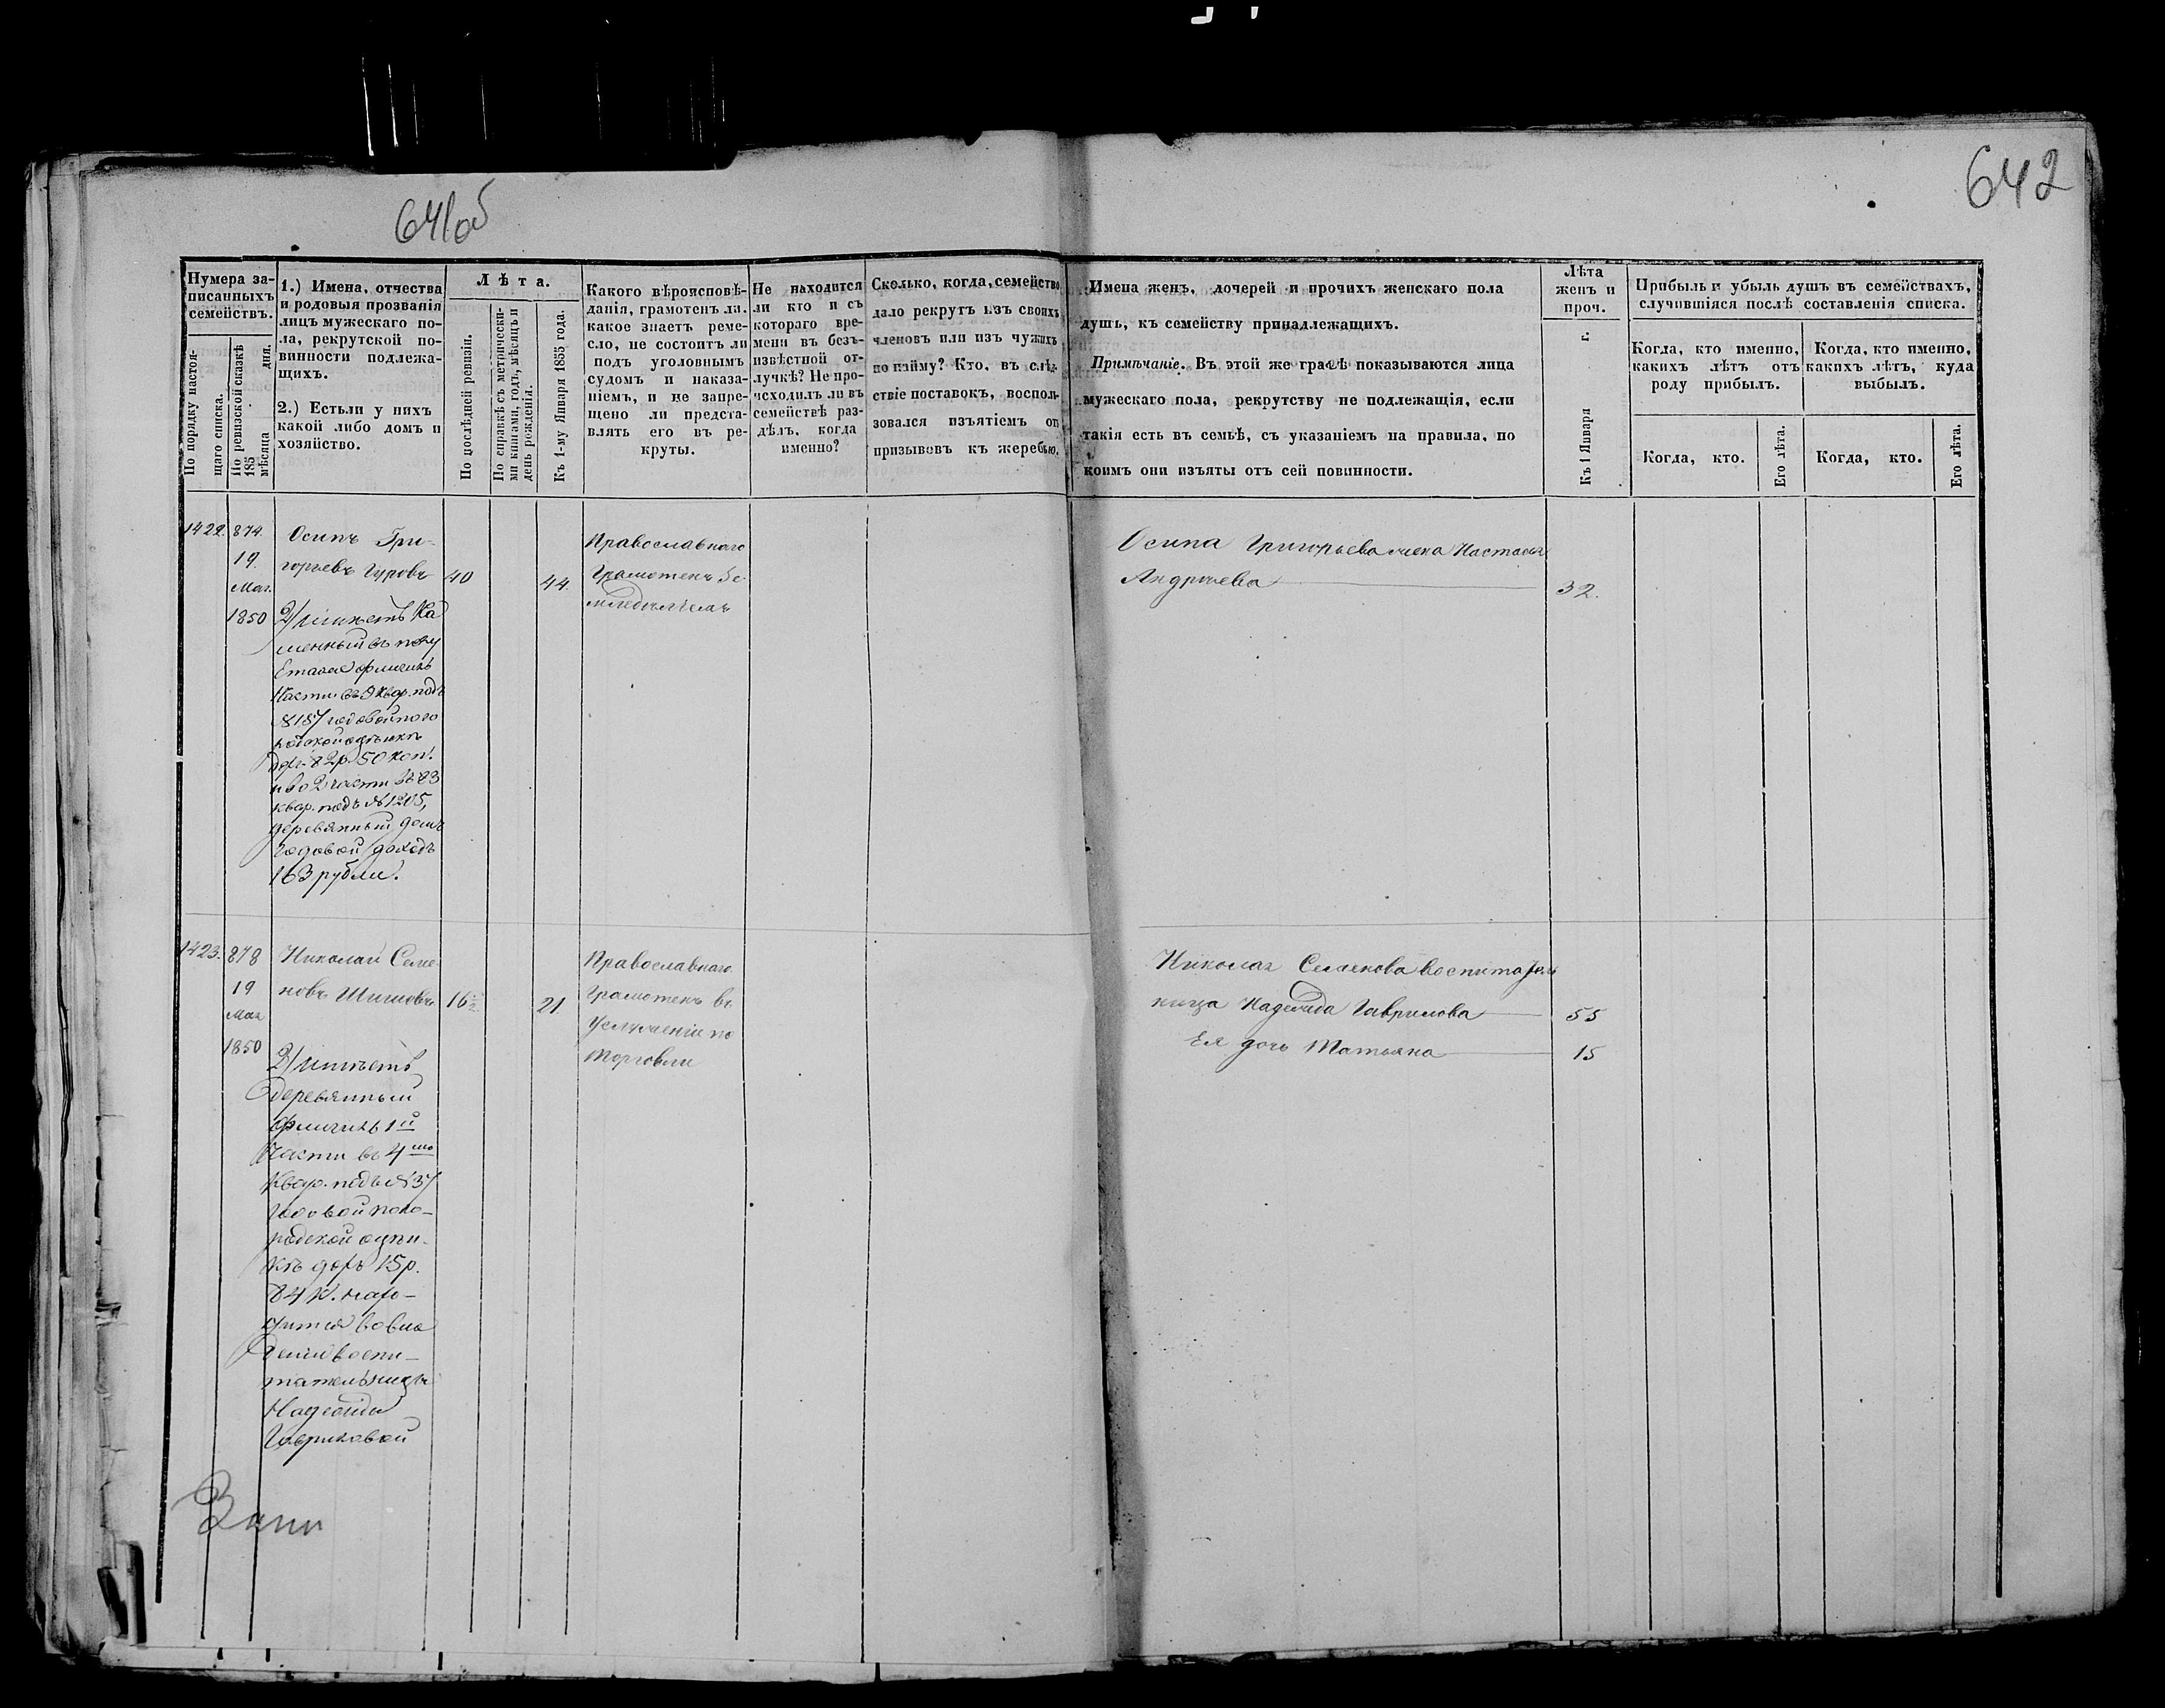 641об
642
Нумера за-
писанныхъ
семействъ.
По порядку настоя-
щаго списка.
По ревизской сказкѣ
185 дня.
мѣсяца
1.) Имена, отчества
и родовыя прозванія
лицъ мужескаго по-
ла, рекрутской по-
винности подлежа-
щихъ.
2.) Естьли у нихъ
какой либо домъ и
хозяйство.
Лѣта.
По послѣдней ревизіи.
По справкѣ съ метрически-
ми книгами, годъ, мѣсяцъ и
день рожденія.
Къ 1-му Января 1855 года.
Какого вѣроисповѣ-
данія, грамотенъ ли,
какое знаетъ реме-
сло, не состоитъ ли
подъ уголовнымъ
судомъ и наказа-
ніемъ, и не запре-
щено ли предста-
влять его въ ре-
круты.
Не находится
ли кто и съ
котораго вре-
мени въ безъ-
извѣстной от-
лучкѣ? Не про-
исходилъ ли въ
семействѣ раз-
дѣлъ, когда
именно?
Сколько, когда, семейство
дало рекрутъ изъ своихъ
членовъ или изъ чужихъ
по найму? Кто, въ слѣд-
ствіе поставокъ, восполь-
зовался изъятіемъ от
призывовъ къ жеребью.
Имена женъ, дочерей и прочихъ женскаго пола
душъ, къ семейству принадлежащихъ.
Примѣчаніе. Въ этой же графѣ показываются лица
мужескаго пола, рекрутству не подлежащія, если
такія есть въ семьѣ, съ указаніемъ на правила, по
коимъ они изъяты отъ сей повинности.
Лѣта
женъ и
проч.
Къ 1 Января г.
Прибыль и убыль душъ въ семействахъ,
случившіяся послѣ составленія списка.
Когда, кто именно,
какихъ лѣтъ отъ
роду прибылъ.
Когда, кто именно,
какихъ лѣтъ, куда
выбылъ.
Когда, кто.
Его лѣта.
Когда, кто.
Его лѣта.
1422.
874.
19.
Мая.
1850
Осипъ Гри-
горьевъ Гуровъ
40
44.
2) Имѣетъ Ка
менный въ полу
Етаже флигиль
Части въ 9 Квар. подъ
№ 187 годовой по го
родской оцѣнкѣ
дох. 82 р. 50 коп.
и во 2 части въ 83
квар. подъ №1205,
деревянный домъ
годовой доходъ
163 рубли.
Православнаго
Грамотенъ Зе
мледѣлѣцъ
Осипа Григорьева жена Настасья
Андреева
32.
1423.
878
19
Мая
1850
Николай Семе
новъ Шишовъ
16½
21
2) Имѣетъ
Деревянный
флигиль 1й
Части въ 4мъ
Квар. подъ №37
годовой по го-
родской оцѣн-
кѣ дохъ 15 р.
84 К. нахо-
дится во вла
дении воспи-
тательницы
Надежды
Гавриловой
Православнаго
Грамотенъ въ
Услужении по
Торговли
Николая Семенова воспитатель
ница Надежда Гаврилова
55
Ея дочь Татьяна
15